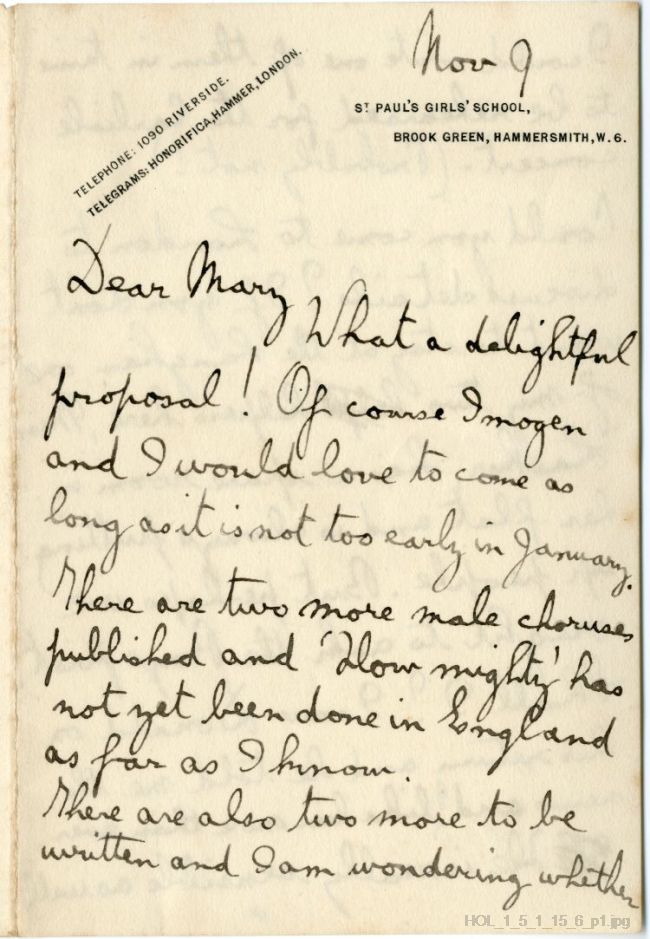 Nov 9
TELEPHONE: 1090 RIVERSIDE.
TELEGRAMS: HONORIFICA, HAMMER, LONDON.
ST PAUL'S GIRLS' SCHOOL,
BROOK GREEN, HAMMERSMITH, W. 6.
Dear Mary
What a delightful
proposal! Of course Imogen
and I would love to come as
long as it is not too early in January.
There are two more male choruses
published and 'How mighty' has
not yet been done in England
as far as I know.
There are also two more to be
written and I am wondering whether
HOL_1_5_1_15_6_p1.jpg